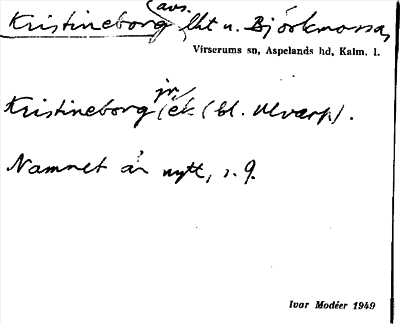 Kristineborg, avs. lht u. Björkmossa,
Virserums sn, Aspelands hd, Kalm. l.
Kristineborg jr, ek (bl. Ulvarp).
Namnet är nytt, s. g.
Ivar Modéer 1949